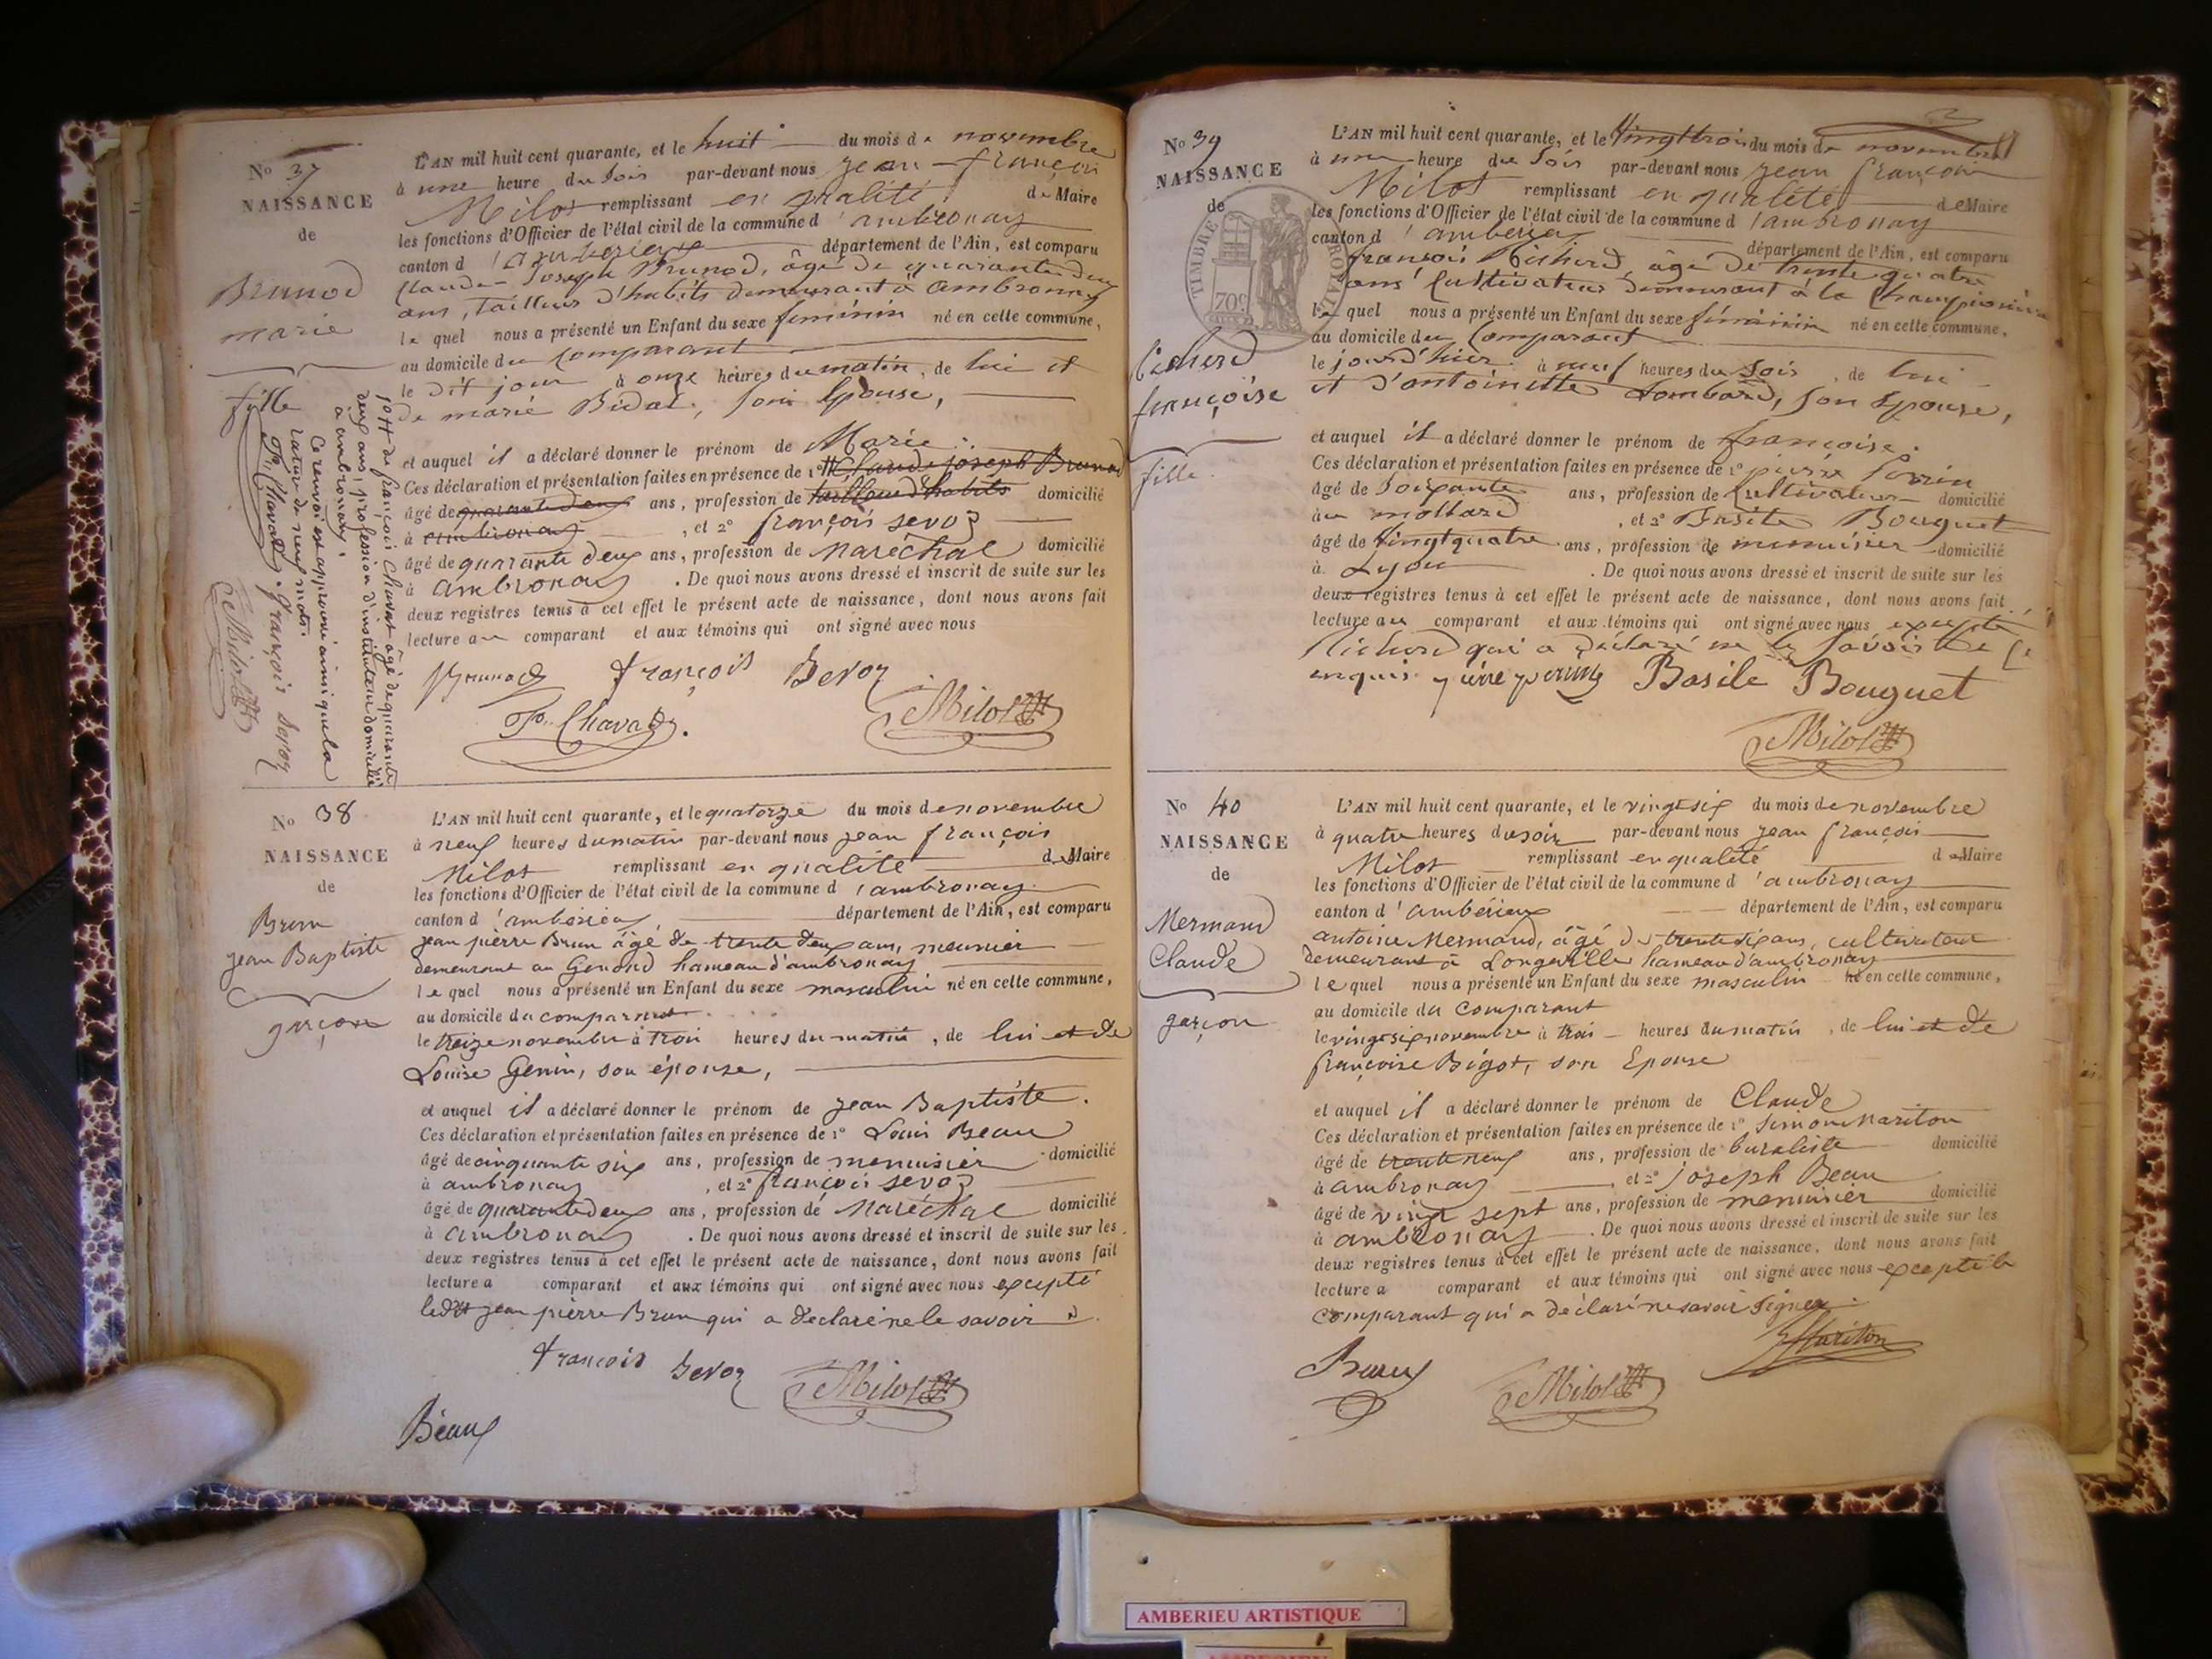 No 37
NAISSANCE
de
Brunod
marie
fille
L'AN mil huit cent quarante, et le huit du mois de novembre
à une heure du soir par-devant nous jean-françois
Milot remplissant en qualité de Maire
les fonctions d'Officier de l'état civil de la commune d'ambronay
canton d'amberieux département de l'Ain, est comparu
Claude Joseph Brunod, âgé de quarante deux
ans, tailleur d'habits demeurant à ambronay
lequel nous a présenté un Enfant du sexe féminin né en cette commune,
au domicile du Comparant
le dit jour à onze heures du matin, de lui et
de marie Bidal, son épouse,
et auquel il a déclaré donner le prénom de Marie.
Ces déclaration et présentation faites en présence de 1° Claude joseph Brunod
âgé de quarante deux ans, profession de tailleur d'habits domicilié
à ambronay, et 2° françois sevoz
âgé de quarante deux ans, profession de Maréchal domicilié
à ambronay. De quoi nous avons dressé et inscrit de suite sur les
deux registres tenus à cet effet le présent acte de naissance, dont nous avons fait
lecture au comparant et aux témoins qui ont signé avec nous
Brunod françois Sevoz
Chavat Milot
de françois Chavat âgé de quarante
deux ans, profession d'instituteur domicilié
à ambronay.
Ce renvoi est approuvé ainsi que la
rature de neuf mots.
Chavat. françois Sevoz
Milot
No 38
NAISSANCE
de
Brun
jean Baptiste
garçon
L'AN mil huit cent quarante, et le quatorze du mois de novembre
à neuf heures du matin par-devant nous jean françois
Milot remplissant en qualité de Maire
les fonctions d'Officier de l'état civil de la commune d'ambronay
canton d'amberieux département de l'Ain, est comparu
jean pierre Brun âgé de trente deux ans, meunier
demeurant au Genoud hameau d'ambronay
lequel nous a présenté un Enfant du sexe masculin né en cette commune,
au domicile du comparant
le treize novembre à trois heures du matin, de lui et de
Louise Genin, son épouse,
et auquel il a déclaré donner le prénom de jean Baptiste.
Ces déclaration et présentation faites en présence de 1° Louis Beau
âgé de cinquante six ans, profession de menuisier domicilié
à ambronay, et 2° françois sevoz
âgé de quarante deux ans, profession de Maréchal domicilié
à ambronay. De quoi nous avons dressé et inscrit de suite sur les
deux registres tenus à cet effet le présent acte de naissance, dont nous avons fait
lecture a comparant et aux témoins qui ont signé avec nous excepté
ledit jean pierre Brun qui a déclaré ne le savoir
françois Sevoz Milot
Beau
No 39
NAISSANCE
de
TIMBRE ROYAL
70c
Richerd
françoise
fille.
L'AN mil huit cent quarante, et le vingt trois du mois de novembre
à une heure du soir par-devant nous jean françois
Milot remplissant en qualité de Maire
les fonctions d'Officier de l'état civil de la commune d'ambronay
canton d'amberieux département de l'Ain, est comparu
françois Richerd, âgé de trente quatre
ans Cultivateur demeurant à la Championière
lequel nous a présenté un Enfant du sexe féminin né en cette commune,
au domicile du Comparant
le jour d'hier à neuf heures du Soir, de lui
et d'antoinette Lombard, son Epouse,
et auquel il a déclaré donner le prénom de françoise.
Ces déclaration et présentation faites en présence de 1° pierre
âgé de Soixante ans, profession de Cultivateur domicilié
au mollard, et 2° Basile Bouguet
âgé de vingt quatre ans, profession de menuisier domicilié
à Lyon. De quoi nous avons dressé et inscrit de suite sur les
deux registres tenus à cet effet le présent acte de naissance, dont nous avons fait
lecture au comparant et aux témoins qui ont signé avec nous excepté
Richerd qui a déclaré ne le Savoir de ce
enquis. Basile Bouguet
Milot
No 40
NAISSANCE
de
Mermand
Claude
garçon
L'AN mil huit cent quarante, et le vingt six du mois de novembre
à quatre heures du soir par-devant nous jean françois
Milot remplissant en qualité de Maire
les fonctions d'Officier de l'état civil de la commune d'ambronay
canton d'ambérieux département de l'Ain, est comparu
antoine Mermand, âgé de trente six ans, cultivateur
demeurant à Longeville hameau d'ambronay
lequel nous a présenté un Enfant du sexe masculin né en cette commune,
au domicile du Comparant
le vingt six novembre à trois heures du matin, de lui et de
françoise Bigot, son Epouse
et auquel il a déclaré donner le prénom de Claude
Ces déclaration et présentation faites en présence de 1° Simon Mariton
âgé de trente neuf ans, profession de buraliste domicilié
à ambronay, et 2° joseph Beau
âgé de vingt sept ans, profession de menuisier domicilié
à ambronay. De quoi nous avons dressé et inscrit de suite sur les
deux registres tenus à cet effet le présent acte de naissance, dont nous avons fait
lecture a comparant et aux témoins qui ont signé avec nous excepté le
comparant qui a déclaré ne savoir signer.
Mariton
Beau Milot
AMBERIEU ARTISTIQUE